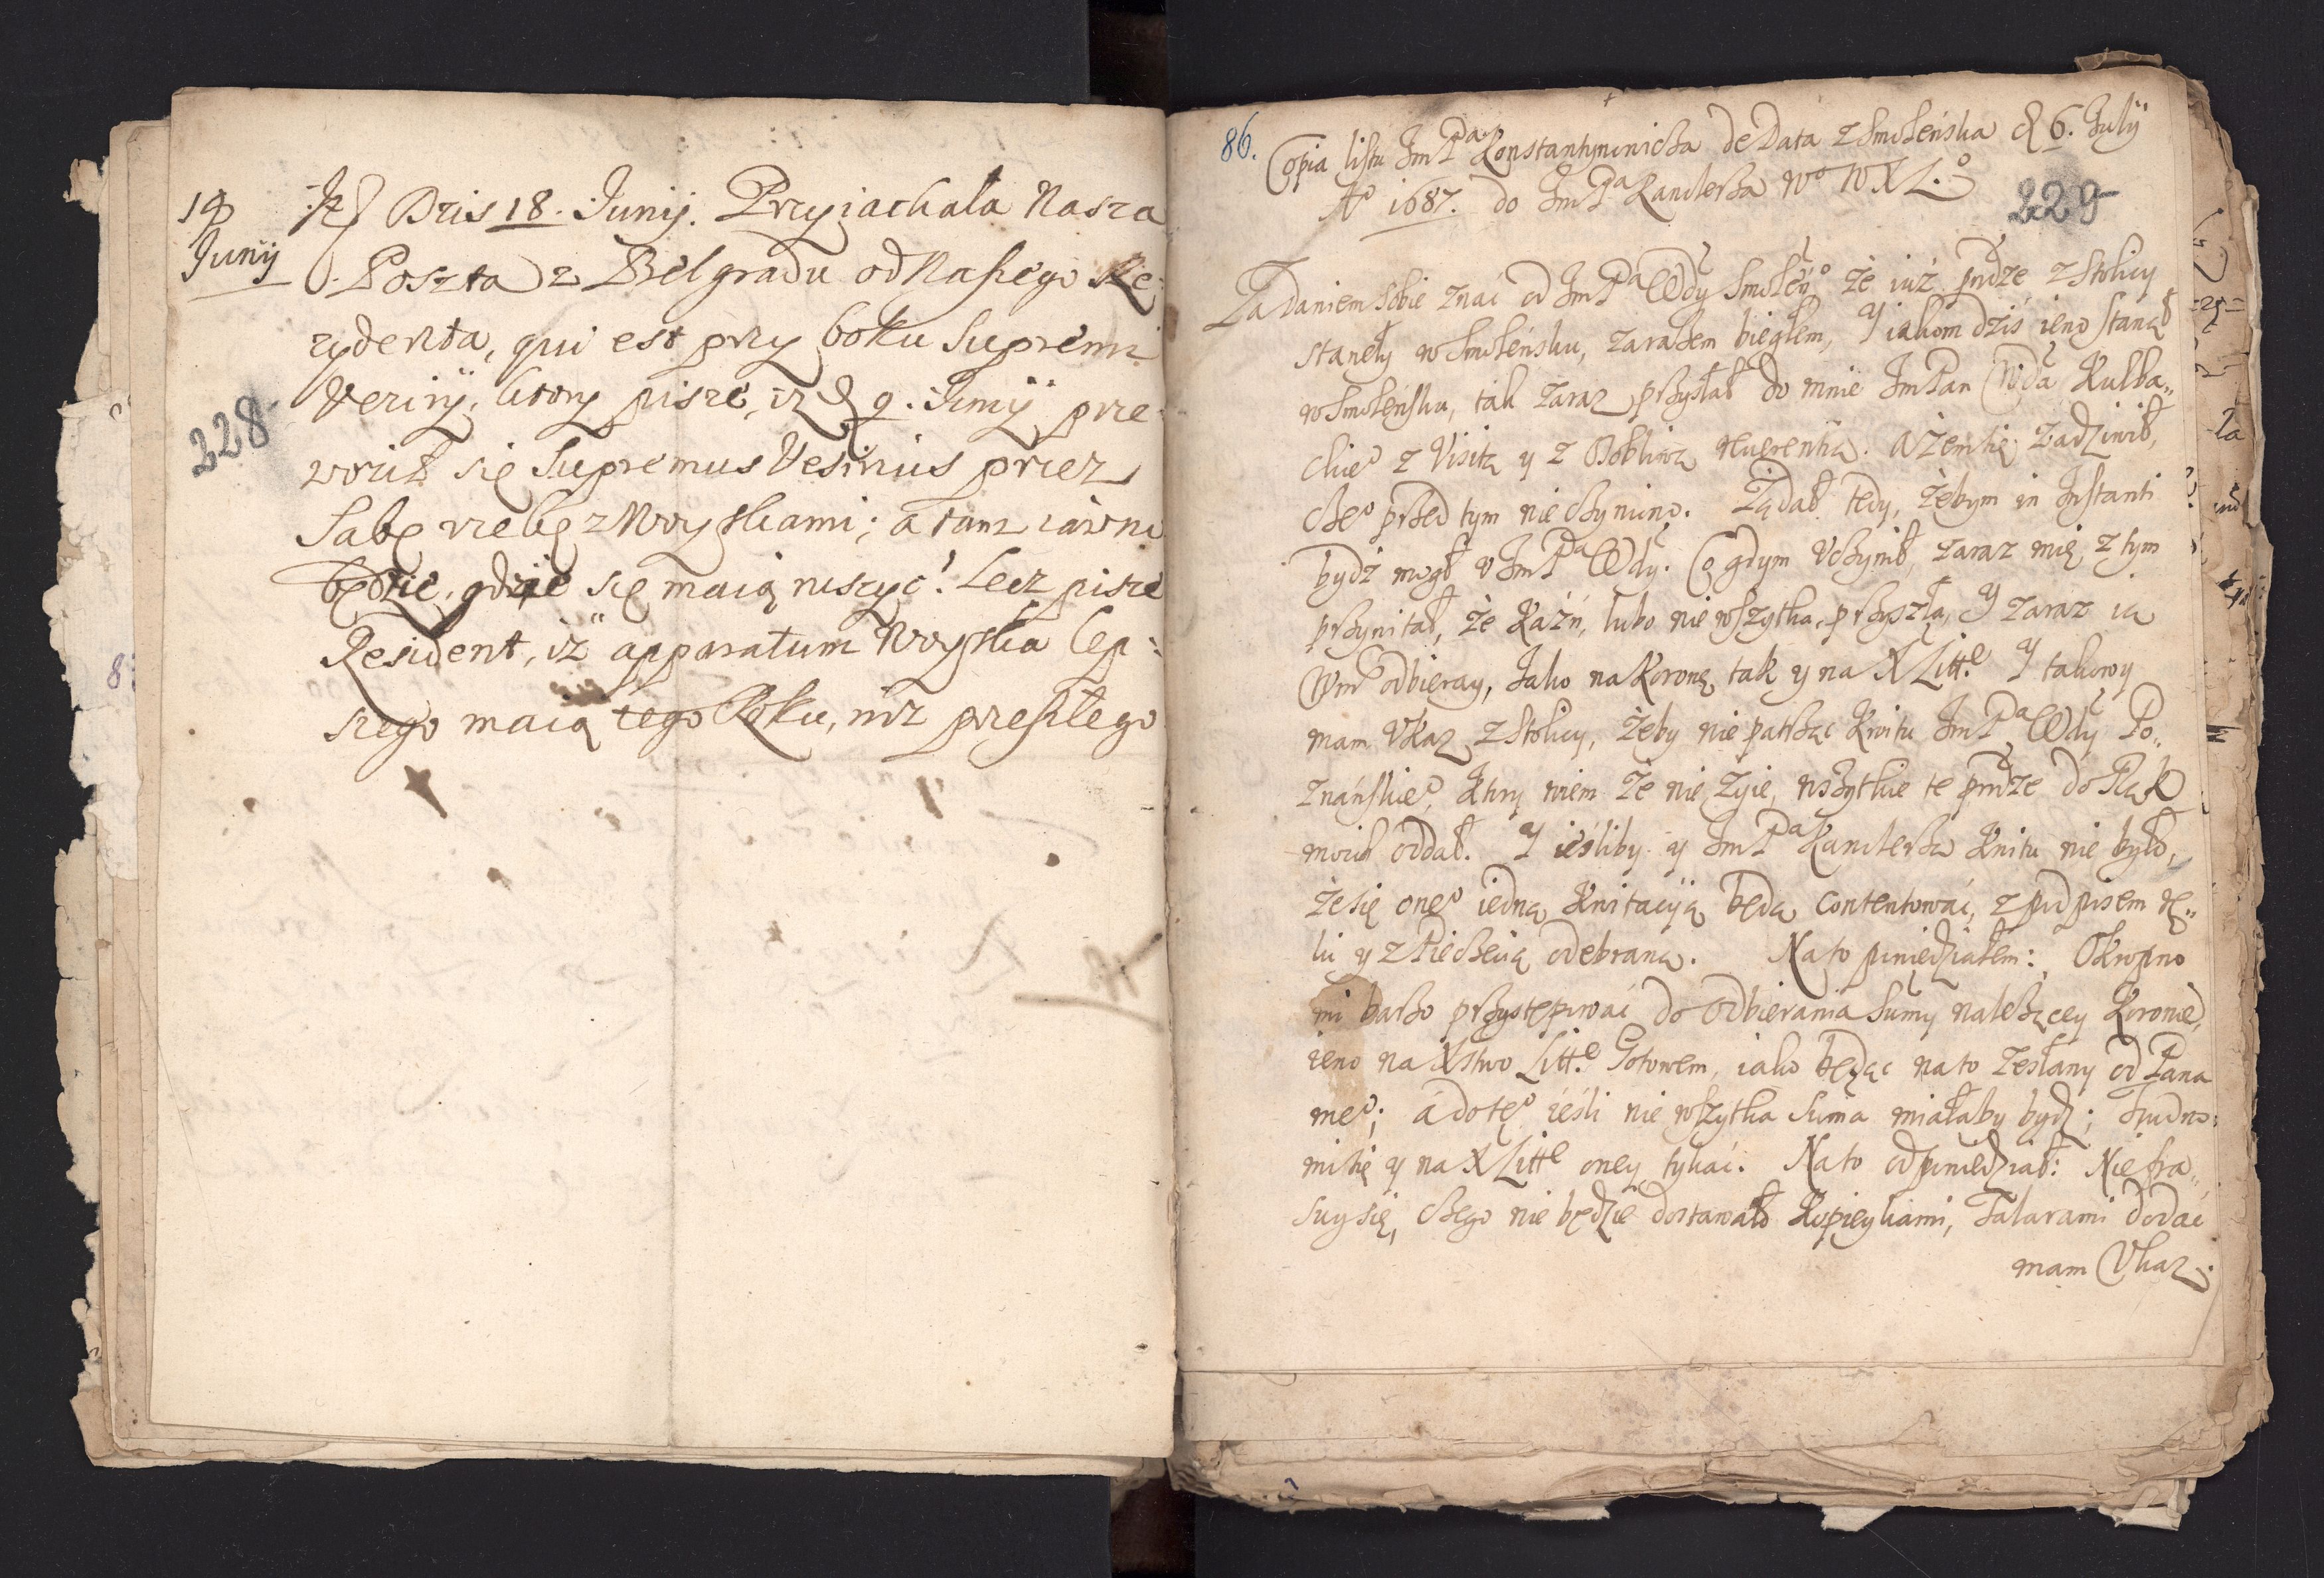 18
Junij
Dzis 18. Junij. Przyiachała Nasza
Poszta z Belgradu od Naszego Re:
zydenta, qui est przy boku Supremi
Veziry, ktory pisze, iz d 9. Junij prze
228
wiuzł się Supremus Vesirius przez
Sabę rzekę z Woyskami; a tam iawno
będzie, gdzie się maią ruszyć! Lecz pisze
Resident, iz apparatum Woyska lep:
szego maią tego Roku, niz przeszłego
86. Copia listu JmPa Konstantynowicza de Data z Smoleńska d 6. Julij
Ao 1687. do JmPa Kanclerza Wo WXLo
229
Za daniem sobie znać od JmPa Wdy Smoleńo że iuż pndze z Stolicy
stanęły w Smoleńsku, zarazem biegłem, Y iakom dziś ieno stanął
w Smoleńsku, tak zaraz przysłał do mnie JmPan Wda Kulba„
ckieo z Visitą y z Osobliwą reuerentią. Ażem się zadziwił,
czeo przed tym nie czyniono. Żądał tedy, żebym in Instanti
bydz mogł v JmPa Wdy. Co gdym vczynił, zaraz mię z tym
przywitał, że Kaźń, lubo nie wszytka, przyszła, Y zaraz ią
Wmc odbieray, Jako na Koronę tak y na X Litte. Y takowy
mam Vkaz z Stolicy, żeby nie patrząc Kwitu JmPa Wdy Po„
znańskieo, Ktory wiem że nie żyie, wszytkie te pndze do Rąk
moich oddał. Y ieśliby y JmPa Kanclerza Kwitu nie było,
że się oneo iedną Kwitacyią będą contentować, z podpisem rę„
ki y z Pieczecią odebraną. Na to powiedziałem: Okropno
mi barzo przystępować do Odbierania Sumy należącey Koronie,
ieno na Xstwo Litte Gotowem, iako będąc na to zesłany od Pana
meo; á do teo ieśli nie wszytka Suma miałaby bydź; trudno
mi się y na X Litte oney tykać. Na to odpowiedział: Nie fra„
suy się, czego nie będzie dostawało Kopieykami, Talarami dodac
mam Vkaz.